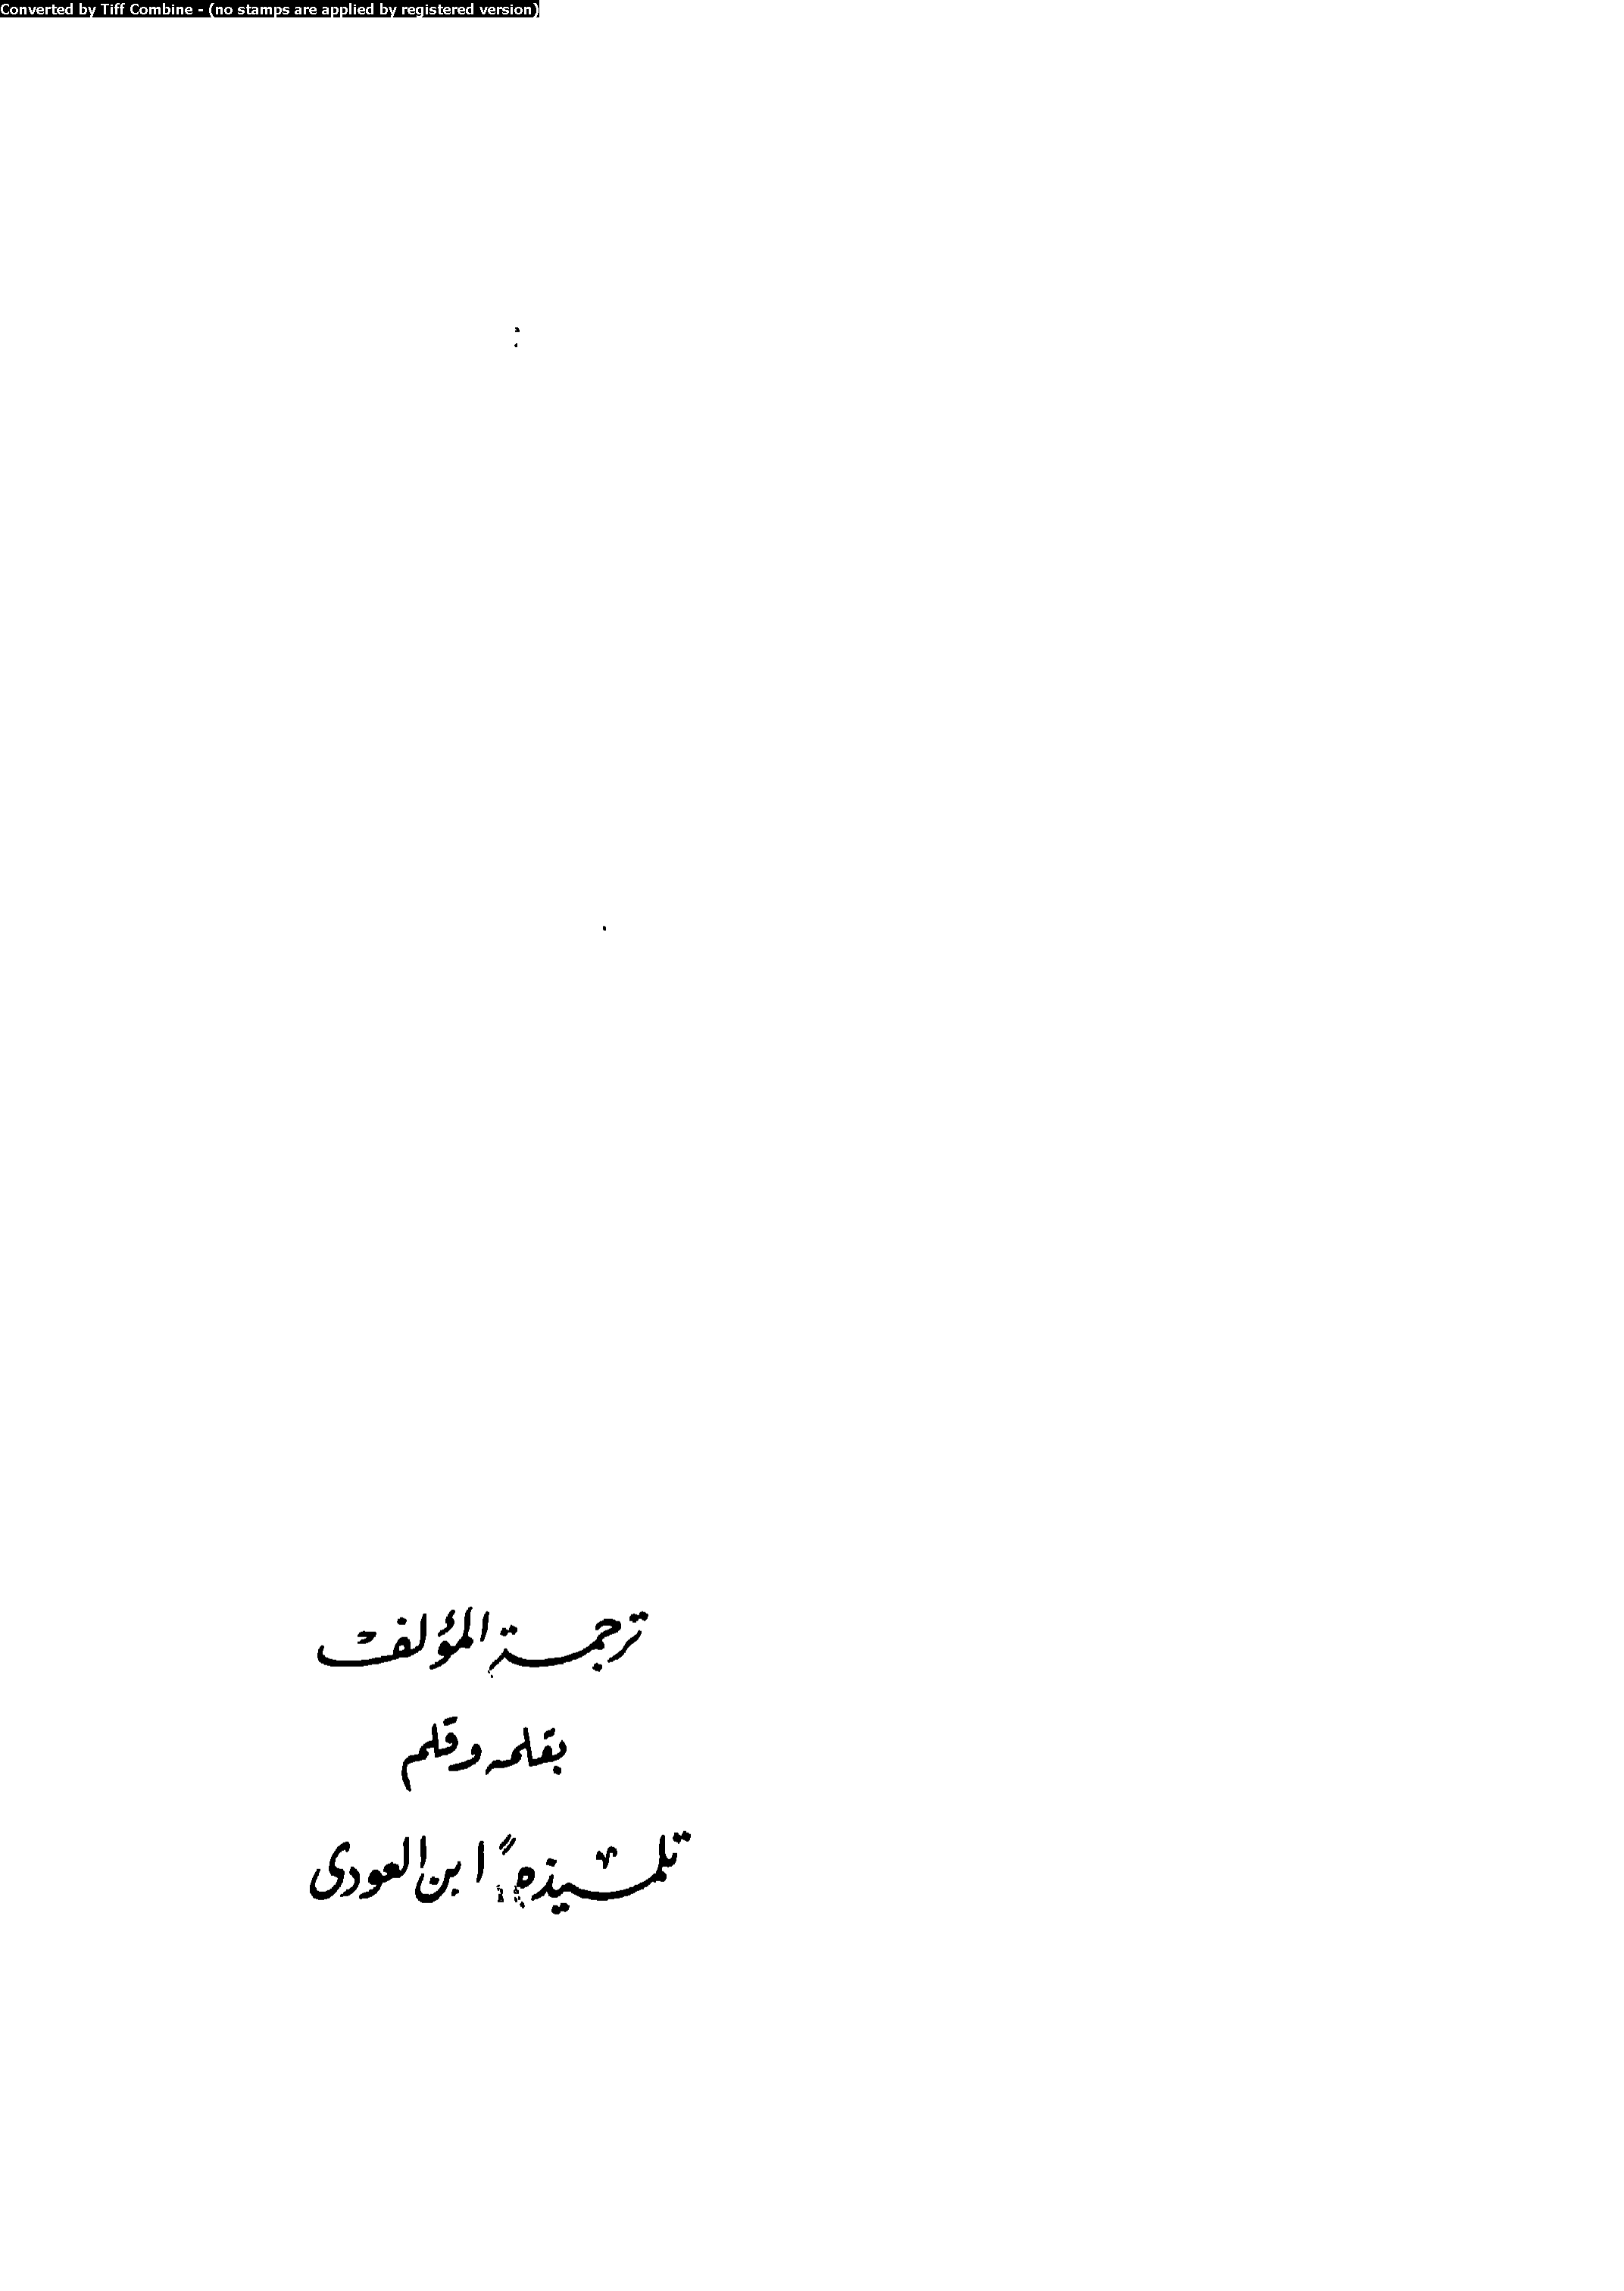 Converted by Tiff Combine - (no stamps are applied by registered version)
ترجمة المؤلف
بقلمه وقلم
تلميذه ابن العودى